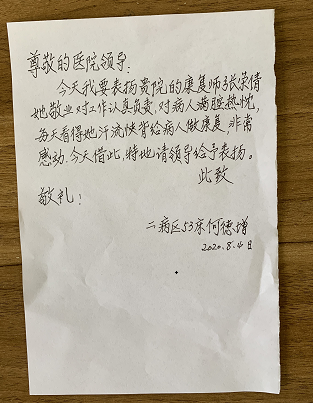 尊敬的医院领导:
今天我要表扬贵院的康复师张荣倩
她敬业对工作认真负责,对病人满腔热忱,
每天看得她汗流快背给病人做康复,非常
感动。今天借此,特地请领导给予表扬。
此致
敬礼!
二病区53床何德增
2020.8.4日